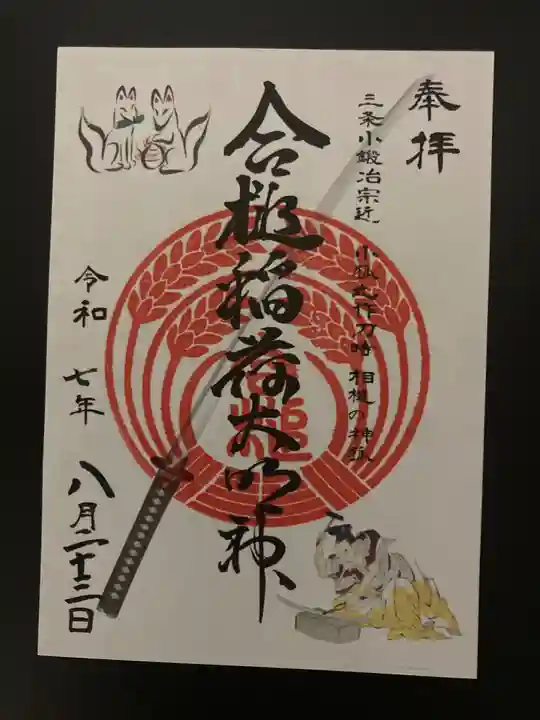 奉拝
三条小鍛冶宗近 小狐丸作刀時 相槌の神狐
合槌稲荷大明神
令和 七年 八月二十三日